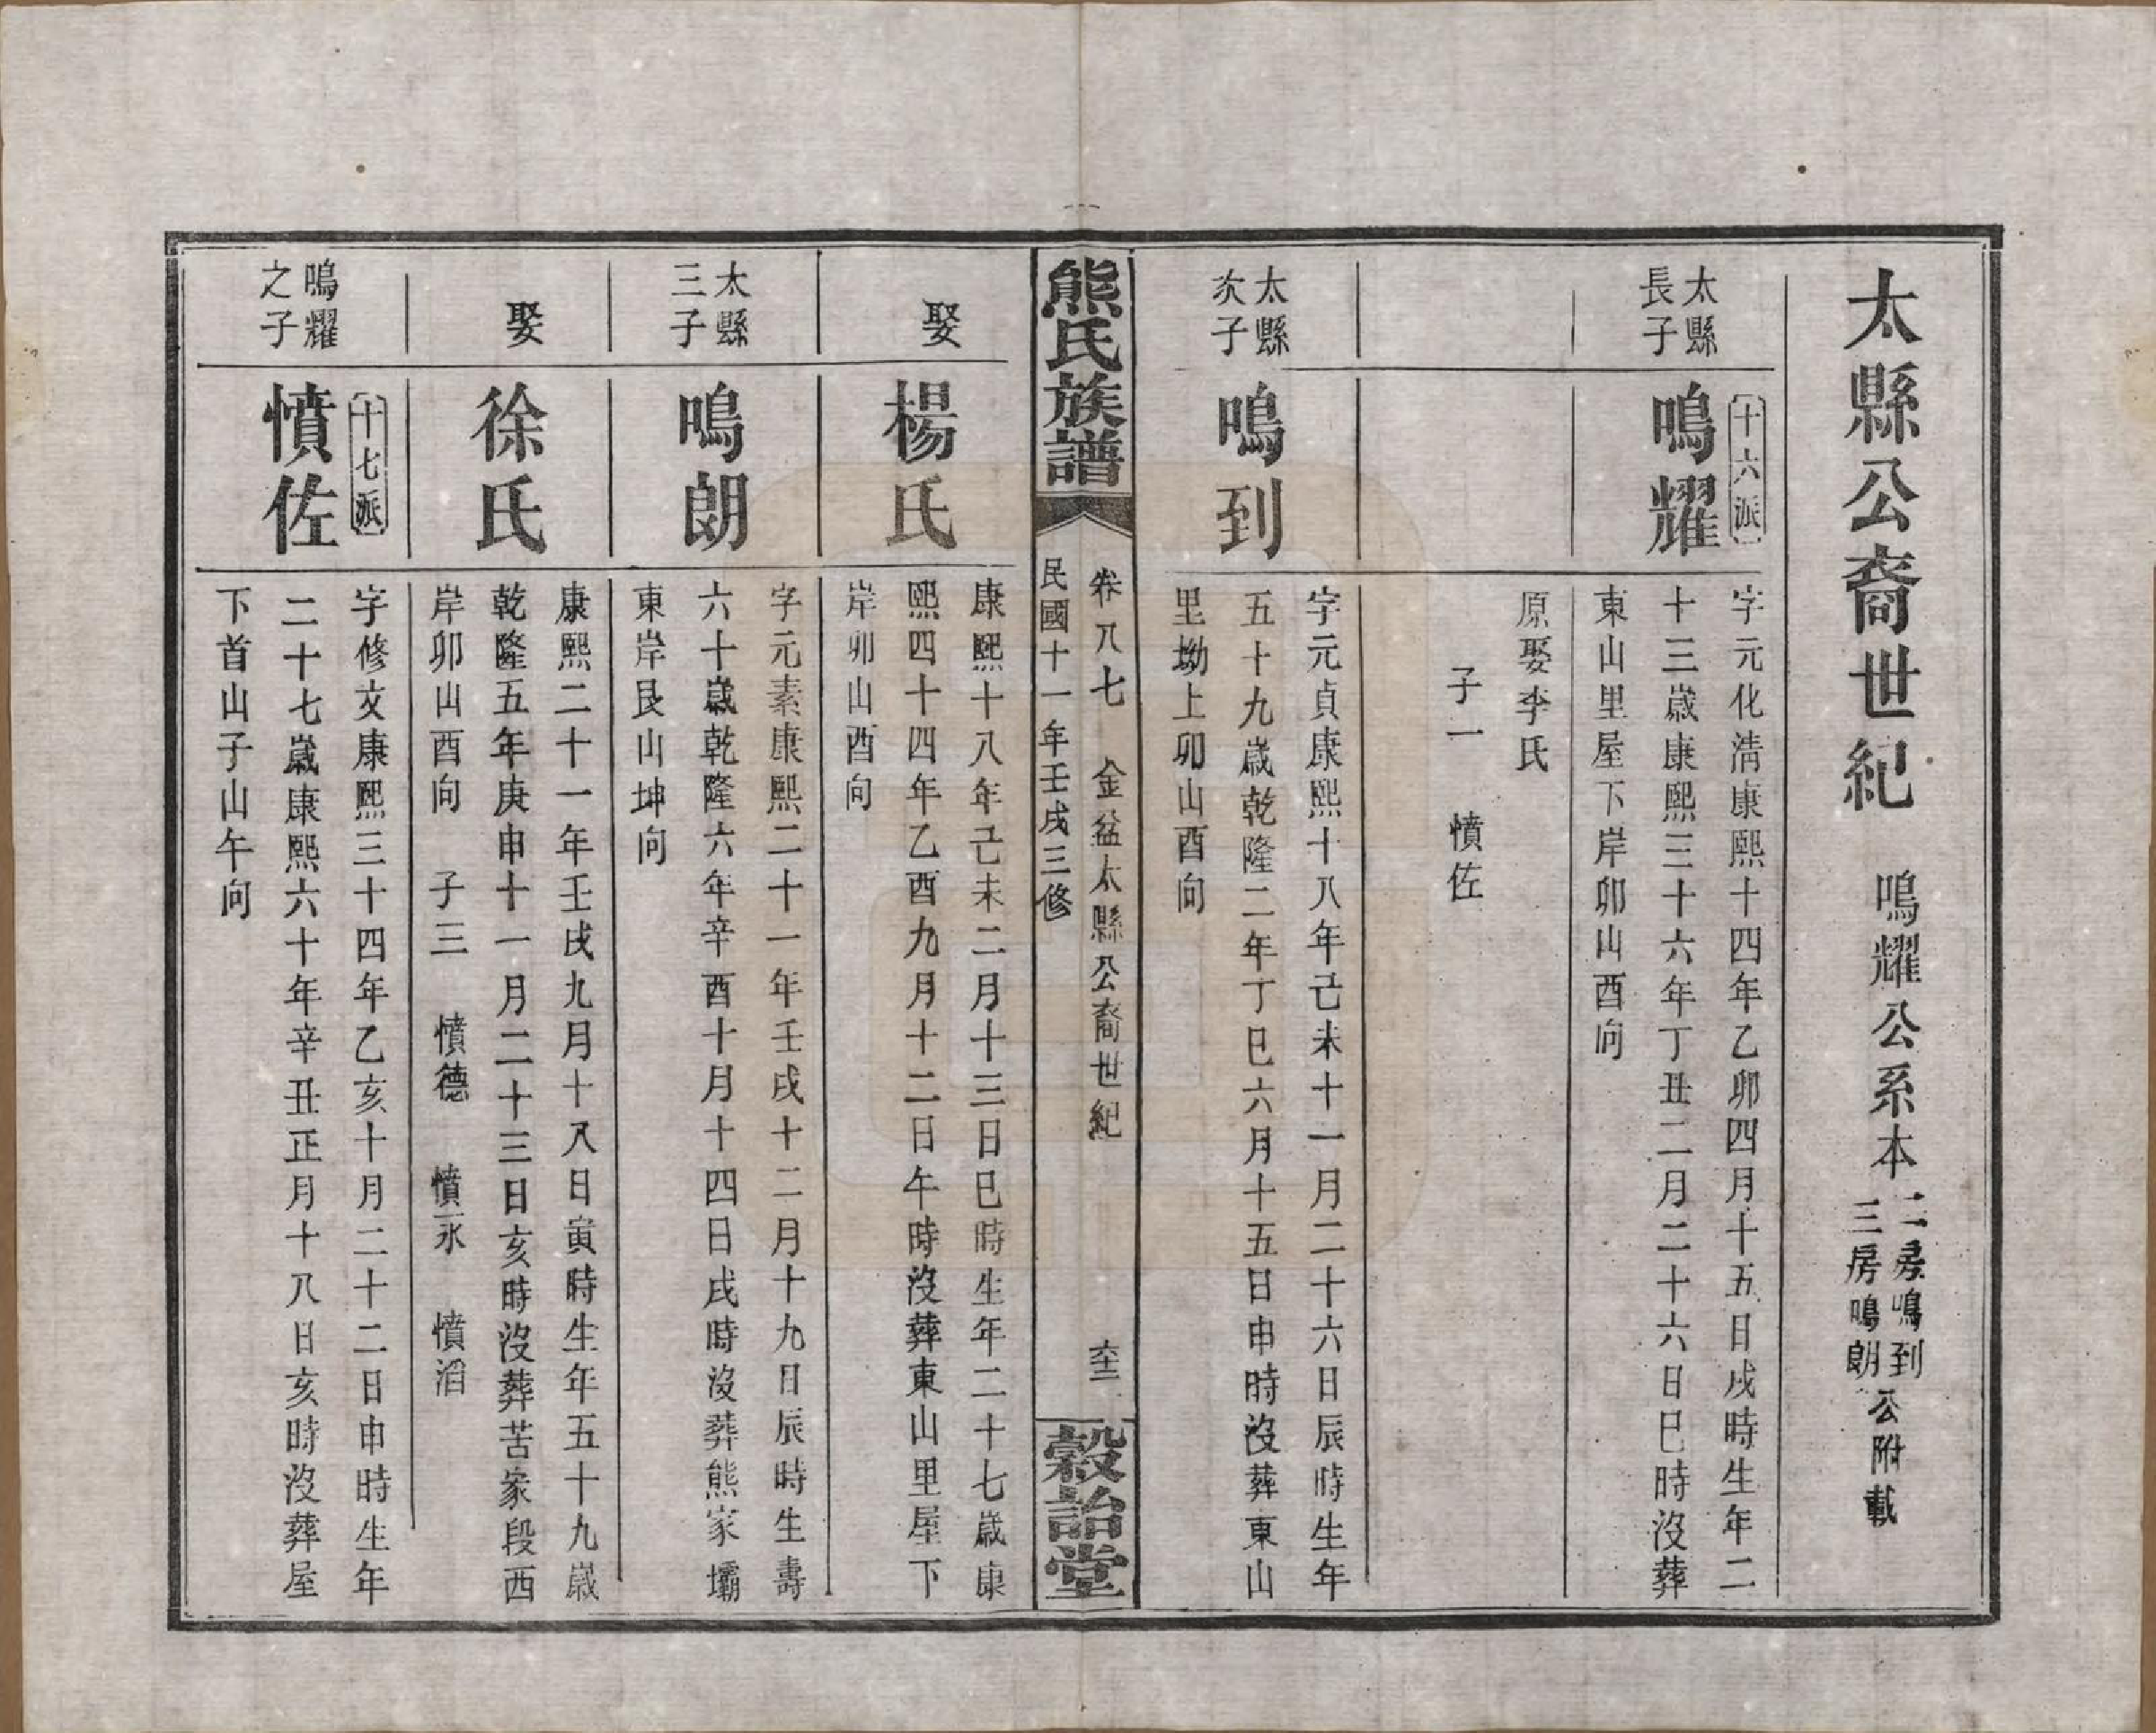 太縣公裔世紀　鳴耀公系本二房鳴到三房鳴朗公附載
太縣
長子
十六派
鳴耀
字元化清康熙十四年乙卯四月十五日戌時生年二
十三歲康熙三十六年丁丑二月二十六日巳時沒葬
東山里屋下岸卯山酉向
原娶李氏
子一　憤佐
太縣
次子
鳴到
字元貞康熙十八年己未十一月二十六日辰時生年
五十九歲乾隆二年丁巳六月十五日申時沒葬東山
里坳上卯山酉向
熊氏族譜
卷八七　金盆太縣公裔世紀
民國十一年壬戌三修
穀詒堂
娶
楊氏
康熙十八年己未二月十三日巳時生年二十七歲康
熙四十四年乙酉九月十二日午時沒葬東山里屋下
岸卯山酉向
太縣
三子
鳴朗
字元素康熙二十一年壬戌十二月十九日辰時生壽
六十歲乾隆六年辛酉十月十四日戌時沒葬熊家壩
東岸艮山坤向
娶
徐氏
康熙二十一年壬戌九月十八日寅時生年五十九歲
乾隆五年庚申十一月二十三日亥時沒葬苦家段西
岸卯山酉向　子三　憤德　憤永　憤滔
鳴耀
之子
十七派
憤佐
字修文康熙三十四年乙亥十月二十二日申時生年
二十七歲康熙六十年辛丑正月十八日亥時沒葬屋
下首山子山午向